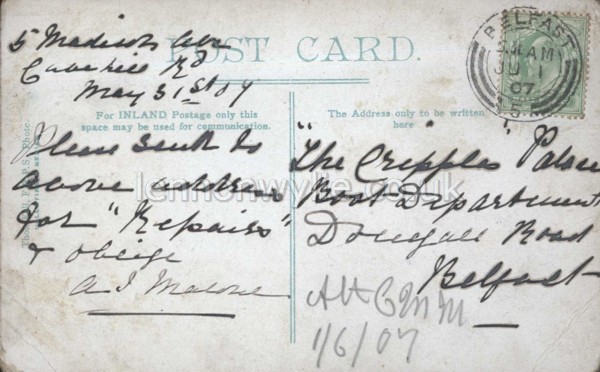 5 Madison Ave
Cavehill Rd
May 31st 07
POST CARD.
For INLAND Postage only this
space may be used for communication.
The Address only to be written
here
Please send to
above address
for "Repairs"
& oblige
A J Malone
"The Cripples Palace
Boot Department
Donegall Road
Belfast
1/6/07
BELFAST
AM
JU 1
07
lennonwylie.co.uk